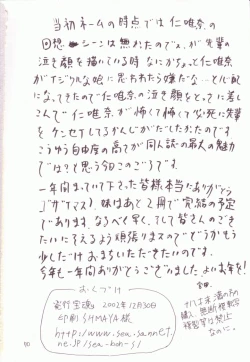 当初ネームの時点では仁唯奈の
回想シーンは無かったのでスが先輩の
泣き顔を描いている時なにがちょっと仁唯奈
がイジワルな娘に思われたら嫌だな…と心配に
なってきたので仁唯奈の泣き顔をとっさに差し
こんで仁唯奈が怖くて怖くて必死に先輩
をケンセイしてるかんじがだしたかったのです
こうゆう自由度の高さが同人誌の最大の魅力
では？と思う今日このごろです。
一年間まっていて下さった皆様本当にありがとう
ございマス
妹はあと2冊で完結の予定
であります。なるべく早く、そして皆さんのごき
たいにそえるよう頑張りマスのでどうかもう
少しだけおまちいただきたいのです。
今年も一年間ありがとうございました よいお年を!
おくづけ
発行 宝魂 2002年12月30日
印刷 SHIMAYA様
http://www.sea.sannet.
ne.jp/sea-boh-s/
18才未満の方の
購入、無断複製、転写
複写等は禁止
なのニ!